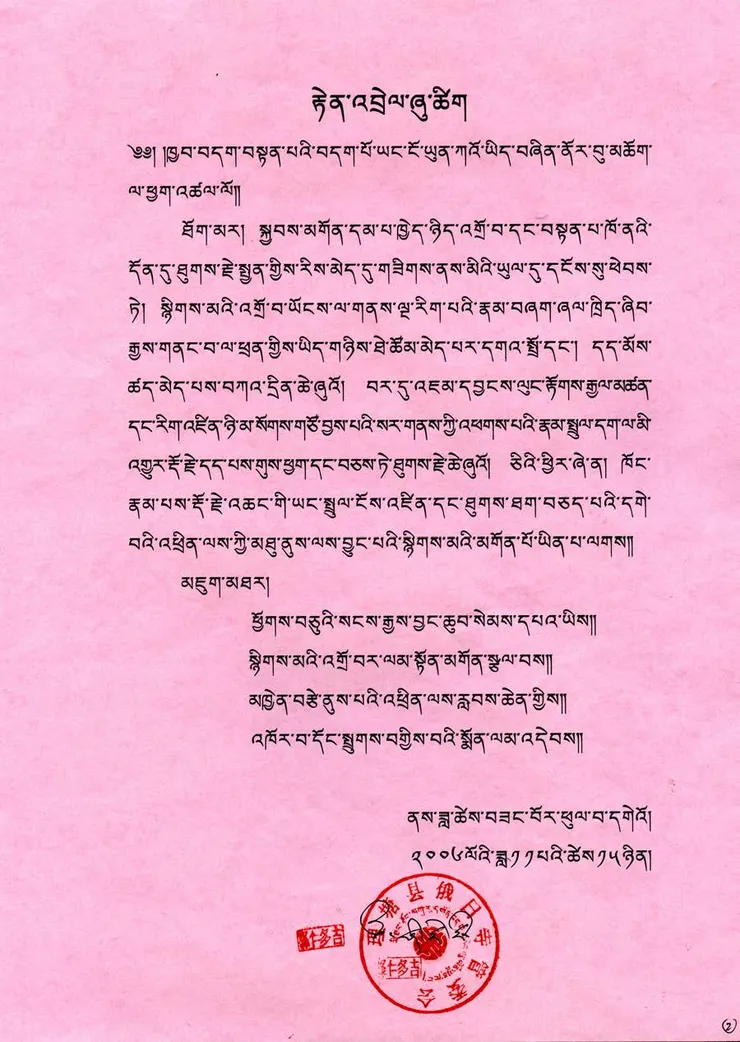 རྟེན་འབྲེལ་ཞུ་ཚིག
༄༅། །ཁྱབ་བདག་བསྟན་པའི་བདག་པོ་ཡང་ངོ་ཡུན་ཀའོ་ཡིད་བཞིན་ནོར་བུ་མཆོག
ལ་ཕྱག་འཚལ་ལོ༎
ཐོག་མར། སྐྱབས་མགོན་དམ་པ་ཁྱེད་ཉིད་འགྲོ་བ་དང་བསྟན་པ་ཁོ་ནའི་
དོན་དུ་ཐུགས་རྗེ་སྤྱན་གྱིས་རིས་མེད་དུ་གཟིགས་ནས་མིའི་ཡུལ་དུ་དངོས་སུ་ཕེབས་
ཏེ། སྙིགས་མའི་འགྲོ་བ་ཡོངས་ལ་གནས་ལྔ་རིག་པའི་རྣམ་བཞག་ཞལ་ཁྲིད་ཞིབ་
རྒྱས་གནང་བ་ལ་ཕྲན་གྱིས་ཡིད་གཉིས་ཐེ་ཚོམ་མེད་པར་དགའ་སྤྲོ་དང་། དད་མོས་
ཚད་མེད་པས་བཀའ་དྲིན་ཆེ་ཞུའོ། བར་དུ་འཇམ་དབྱངས་ལུང་རྟོགས་རྒྱལ་མཚན་
དང་རིག་འཛིན་ཉི་མ་སོགས་གཙོ་བྱས་པའི་སར་གནས་ཀྱི་འཕགས་པའི་རྣམ་སྤྲུལ་དག་ལ་མི་
འགྱུར་རྡོ་རྗེ་དད་པས་གུས་ཕྱག་དང་བཅས་ཏེ་ཐུགས་རྗེ་ཆེ་ཞུའོ། ཅིའི་ཕྱིར་ཞེ་ན། ཁོང་
རྣམ་པས་རྡོ་རྗེ་འཆང་གི་ཡང་སྤྲུལ་ངོས་འཛིན་དང་ཐུགས་ཐག་བཅད་པའི་དགེ་
བའི་འཕྲིན་ལས་ཀྱི་མཐུ་ནུས་ལས་བྱུང་བའི་སྙིགས་མའི་མགོན་པོ་ཡིན་པ་ལགས༎
མཇུག་མཐར།
ཕྱོགས་བཅུའི་སངས་རྒྱས་བྱང་ཆུབ་སེམས་དཔའ་ཡིས༎
སྙིགས་མའི་འགྲོ་བར་ལམ་སྟོན་མགོན་སྩལ་བས༎
མཁྱེན་བརྩེ་ནུས་པའི་འཕྲིན་ལས་རླབས་ཆེན་གྱིས༎
འཁོར་བ་དོང་སྤྲུགས་བགྱིས་བའི་སྨོན་ལམ་འདེབས༎
ནས་ཟླ་ཚེས་བཟང་པོར་ཕུལ་བ་དགེའོ།
༢༠༠༦ལོའི་ཟླ་༡༡པའི་ཚེས་༡༥ཉིན།
理塘县俄日寺管委会
②